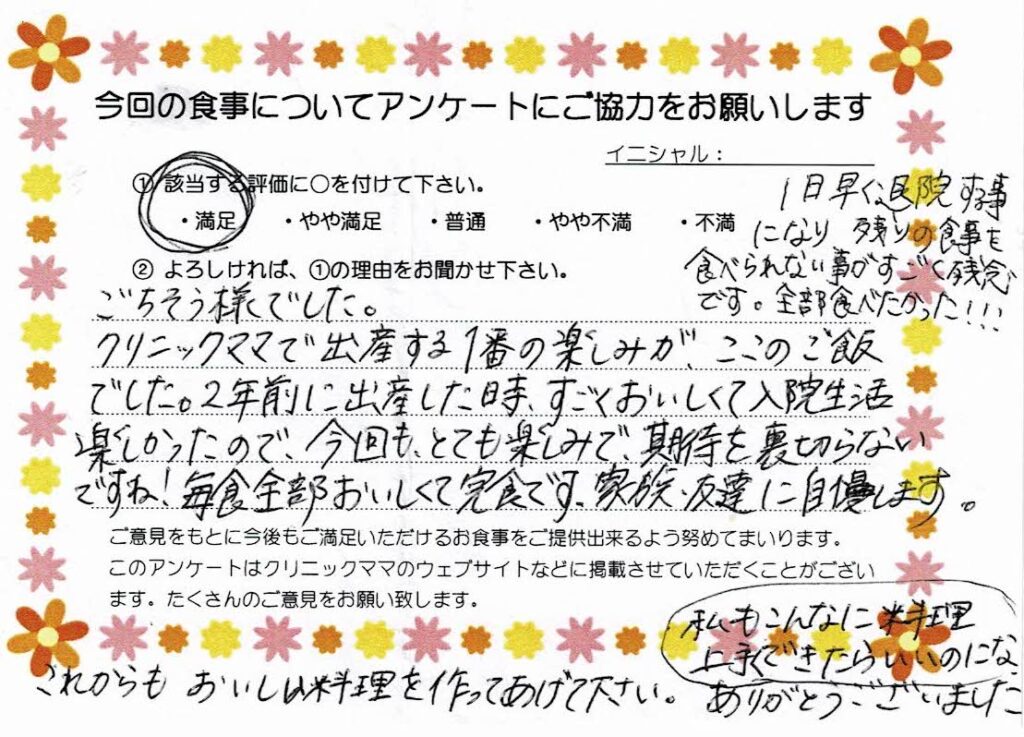 今回の食事についてアンケートにご協力をお願いします
イニシャル：
① 該当する評価に○を付けて下さい。
・満足 ・やや満足 ・普通 ・やや不満 ・不満
② よろしければ、①の理由をお聞かせ下さい。
1日早く退院する事
になり 残りの食事を
食べられない事がすごく残念
です。全部食べたかった!!!
ごちそう様でした。
クリニックママで出産する1番の楽しみが、ここのご飯
でした。2年前に出産した時、すごくおいしくて入院生活
楽しかったので、今回も、とても楽しみで、期待を裏切らない
ですね!毎食全部おいしくて完食です、家族、友達に自慢します。
ご意見をもとに今後もご満足いただけるお食事をご提供出来るよう努めてまいります。
このアンケートはクリニックママのウェブサイトなどに掲載させていただくことがござい
ます。たくさんのご意見をお願い致します。
私もこんなに料理
上手できたらいいのにな
これからも おいしい料理を作ってあげて下さい。
ありがとうございました